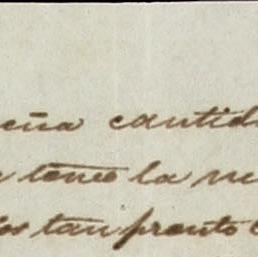 eña cantid
tence la ne
los tan pronto c